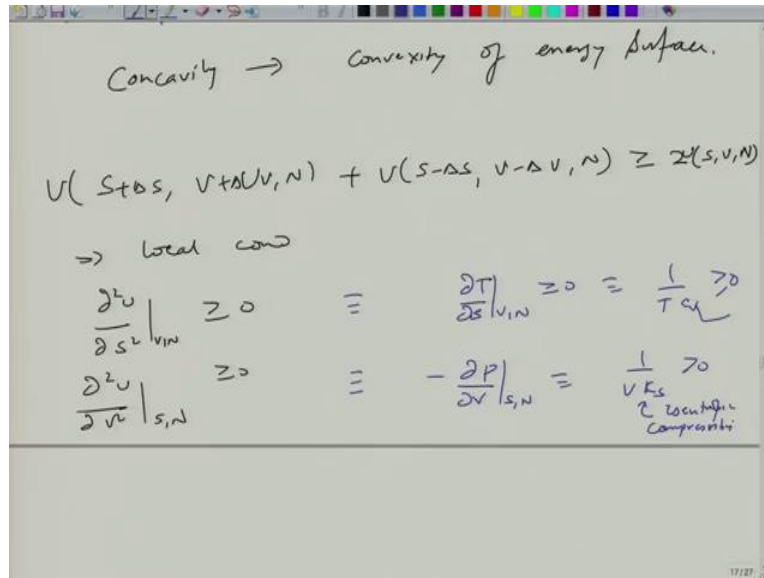 Concavity → Convexity of energy surface.
U( S+ΔS, V+ΔUV, N) + U(S-ΔS, V-ΔV, N) ≥ 2U(S,V,N)
⇒ local cond
∂²U/∂S²|V,N ≥ 0 ≡ ∂T/∂S|V,N ≥ 0 ≡ 1/T CV ≥0
∂²U/∂V²|S,N ≥0 ≡ -∂P/∂V|S,N ≡ 1/V KS >0
isentropic
17/27